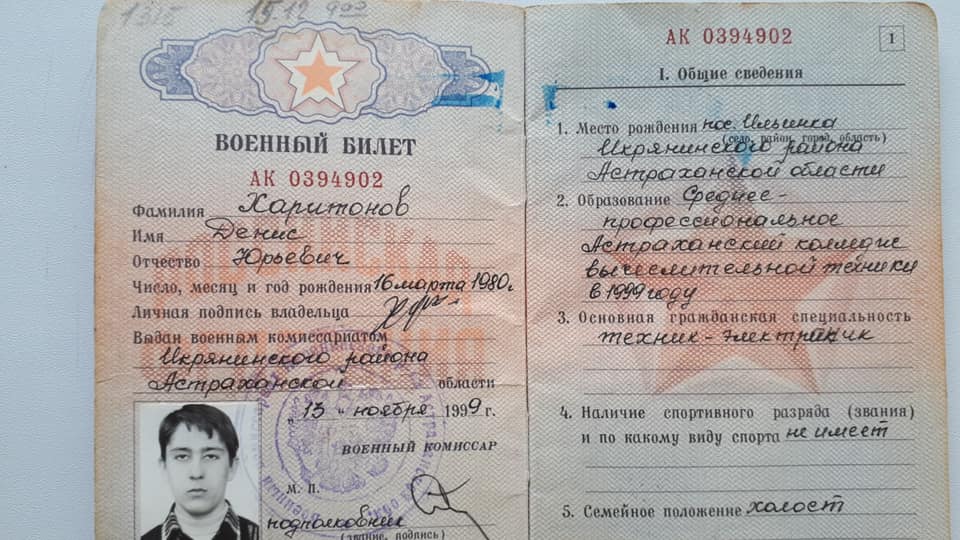 1315 15.12 9⁰⁰
ВОЕННЫЙ БИЛЕТ
АК 0394902
Фамилия Харитонов
Имя Денис
Отчество Юрьевич
Число, месяц и год рождения 16 марта 1980 г.
Личная подпись владельца
Выдан военным комиссариатом
Икрянинского района
Астраханской области
„ 13 “ ноября 1999 г.
ВОЕННЫЙ КОМИССАР
М. П.
подполковник
(звание, подпись)
АК 0394902 1
I. Общие сведения
1. Место рождения пос. Ильинка
(село, район, город, область)
Икрянинского района
Астраханской области
2. Образование Среднее-
профессиональное
Астраханский колледж
вычеслительной техники
в 1999 году
3. Основная гражданская специальность
техник-электрик
4. Наличие спортивного разряда (звания)
и по какому виду спорта не имеет
5. Семейное положение холост